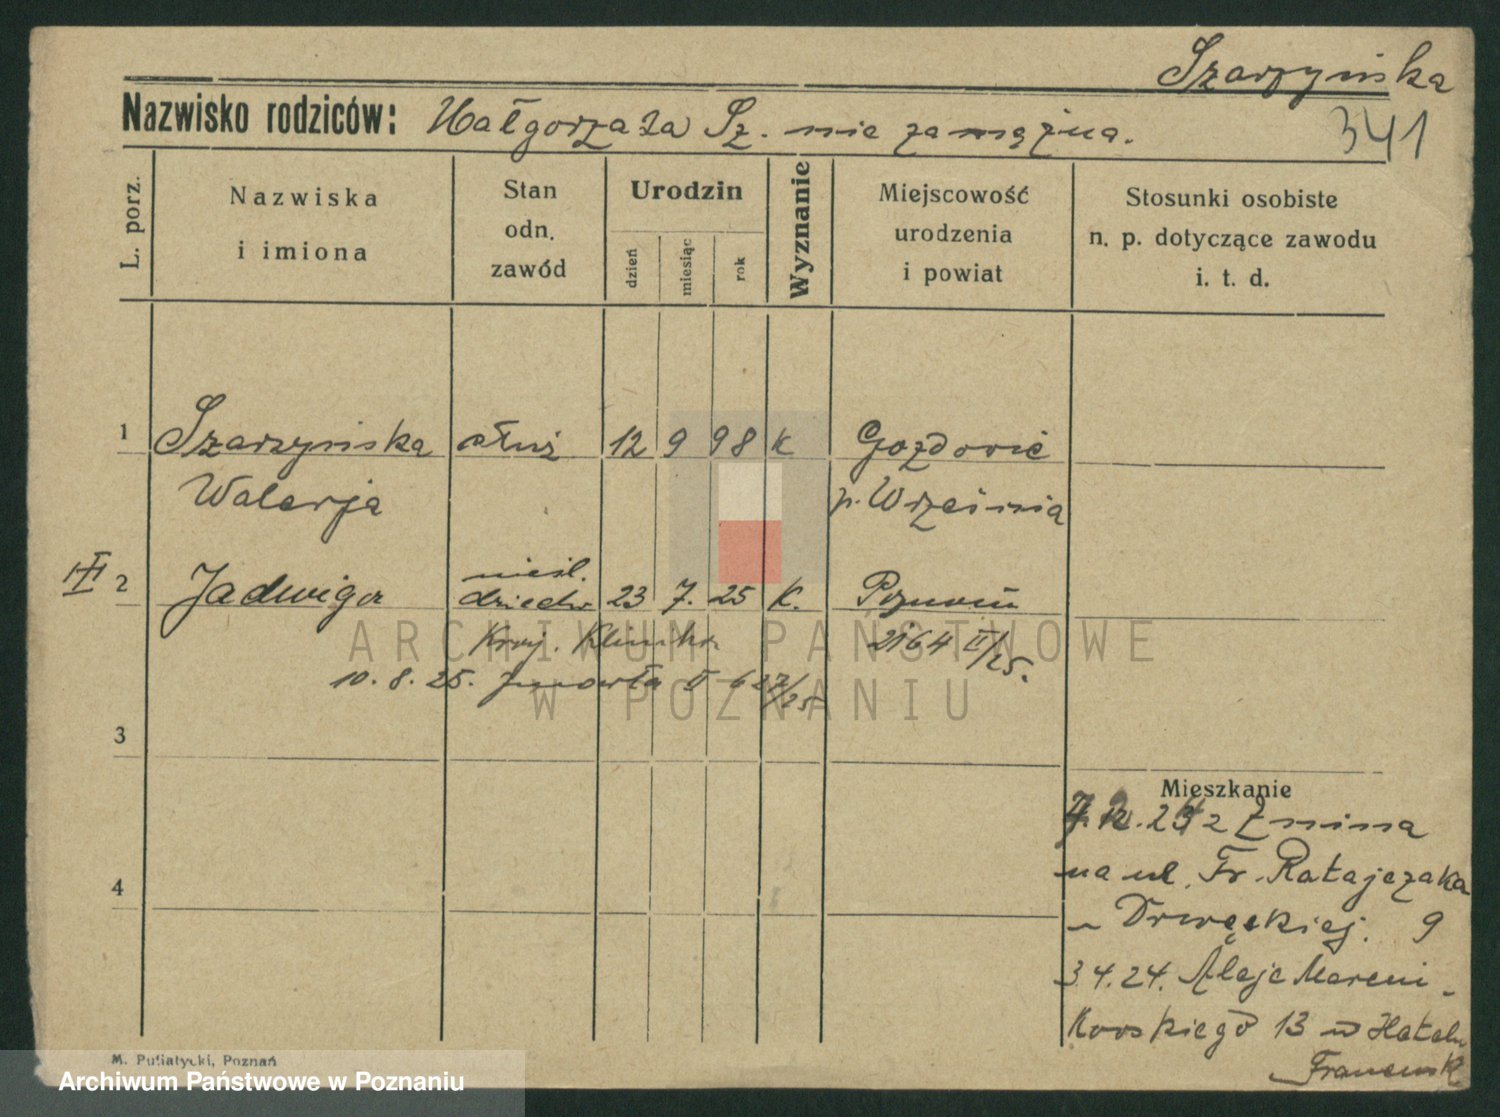 Szarzyńska
Nazwisko rodziców: Małgorzata Sz. nie zamężna.
341
L. porz.
Nazwiska i imiona
Stan odn. zawód
Urodzin
dzień
miesiąc
rok
Wyznanie
Miejscowość urodzenia i powiat
Stosunki osobiste n. p. dotyczące zawodu i. t. d.
1 Szarzyńska służ 12 9 98 K Gozdowie
Walerja p. Września
nieśl.
2 Jadwiga dziecko 23 7. 25 K. Poznań
2164 II/25.
10. 8. 25. zmarła
ARCHIWUM PAŃSTWOWE
W POZNANIU
3
Mieszkanie
z Żnina
na ul. Fr. Ratajczaka
4
Drwęskiej. 9
3.4.24. Aleje Marcin-
kowskiego 13
M. Putiatycki, Poznań
Archiwum Państwowe w Poznaniu